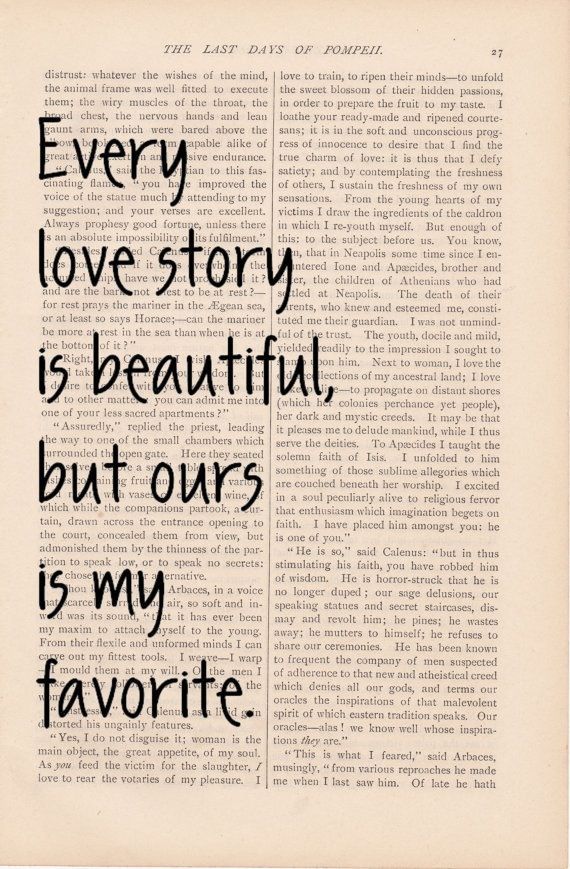 THE LAST DAYS OF POMPEII.
27
Every
love story
is beautiful,
but ours
is my
favorite.
distrust: whatever the wishes of the mind,
the animal frame was well fitted to execute
them; the wiry muscles of the throat, the
broad chest, the nervous hands and lean
gaunt arms, which were bared above the
capable alike of
endurance.
to this fas-
improved the
voice of the statue much attending to my
suggestion; and your verses are excellent.
Always prophesy good fortune, unless there
is an absolute impossibility its fulfilment."
and are the barks not to be at rest?—
for rest prays the mariner in the Ægean sea,
or at least so says Horace;—can the mariner
be more at rest in the sea than when he is at
the bottom of it?"
to other matters. you can admit me into
one of your less sacred apartments?"
"Assuredly," replied the priest, leading
the way to one of the small chambers which
surrounded the open gate. Here they seated
which while the companions partook, a cur-
tain, drawn across the entrance opening to
the court, concealed them from view, but
admonished them by the thinness of the par-
tition to speak low, or to speak no secrets:
Arbaces, in a voice
air, so soft and in-
was its sound, "that it has ever been
my maxim to attach myself to the young.
From their flexile and unformed minds I can
carve out my fittest tools. I weave—I warp
mould them at my will. the men I
distorted his ungainly features.
"Yes, I do not disguise it; woman is the
main object, the great appetite, of my soul.
As you feed the victim for the slaughter, I
love to rear the votaries of my pleasure. I
love to train, to ripen their minds—to unfold
the sweet blossom of their hidden passions,
in order to prepare the fruit to my taste. I
loathe your ready-made and ripened courte-
sans; it is in the soft and unconscious prog-
ress of innocence to desire that I find the
true charm of love: it is thus that I defy
satiety; and by contemplating the freshness
of others, I sustain the freshness of my own
sensations. From the young hearts of my
victims I draw the ingredients of the caldron
in which I re-youth myself. But enough of
this: to the subject before us. You know,
then, that in Neapolis some time since I en-
countered Ione and Apæcides, brother and
sister, the children of Athenians who had
settled at Neapolis. The death of their
parents, who knew and esteemed me, consti-
tuted me their guardian. I was not unmind-
ful of the trust. The youth, docile and mild,
yielded readily to the impression I sought to
upon him. Next to woman, I love the
recollections of my ancestral land; I love
to propagate on distant shores
(which her colonies perchance yet people),
her dark and mystic creeds. It may be that
it pleases me to delude mankind, while I thus
serve the deities. To Apæcides I taught the
solemn faith of Isis. I unfolded to him
something of those sublime allegories which
are couched beneath her worship. I excited
in a soul peculiarly alive to religious fervor
that enthusiasm which imagination begets on
faith. I have placed him amongst you: he
is one of you."
"He is so," said Calenus: "but in thus
stimulating his faith, you have robbed him
of wisdom. He is horror-struck that he is
no longer duped; our sage delusions, our
speaking statues and secret staircases, dis-
may and revolt him; he pines; he wastes
away; he mutters to himself; he refuses to
share our ceremonies. He has been known
to frequent the company of men suspected
of adherence to that new and atheistical creed
which denies all our gods, and terms our
oracles the inspirations of that malevolent
spirit of which eastern tradition speaks. Our
oracles—alas! we know well whose inspira-
tions they are."
"This is what I feared," said Arbaces,
musingly, "from various reproaches he made
me when I last saw him. Of late he hath